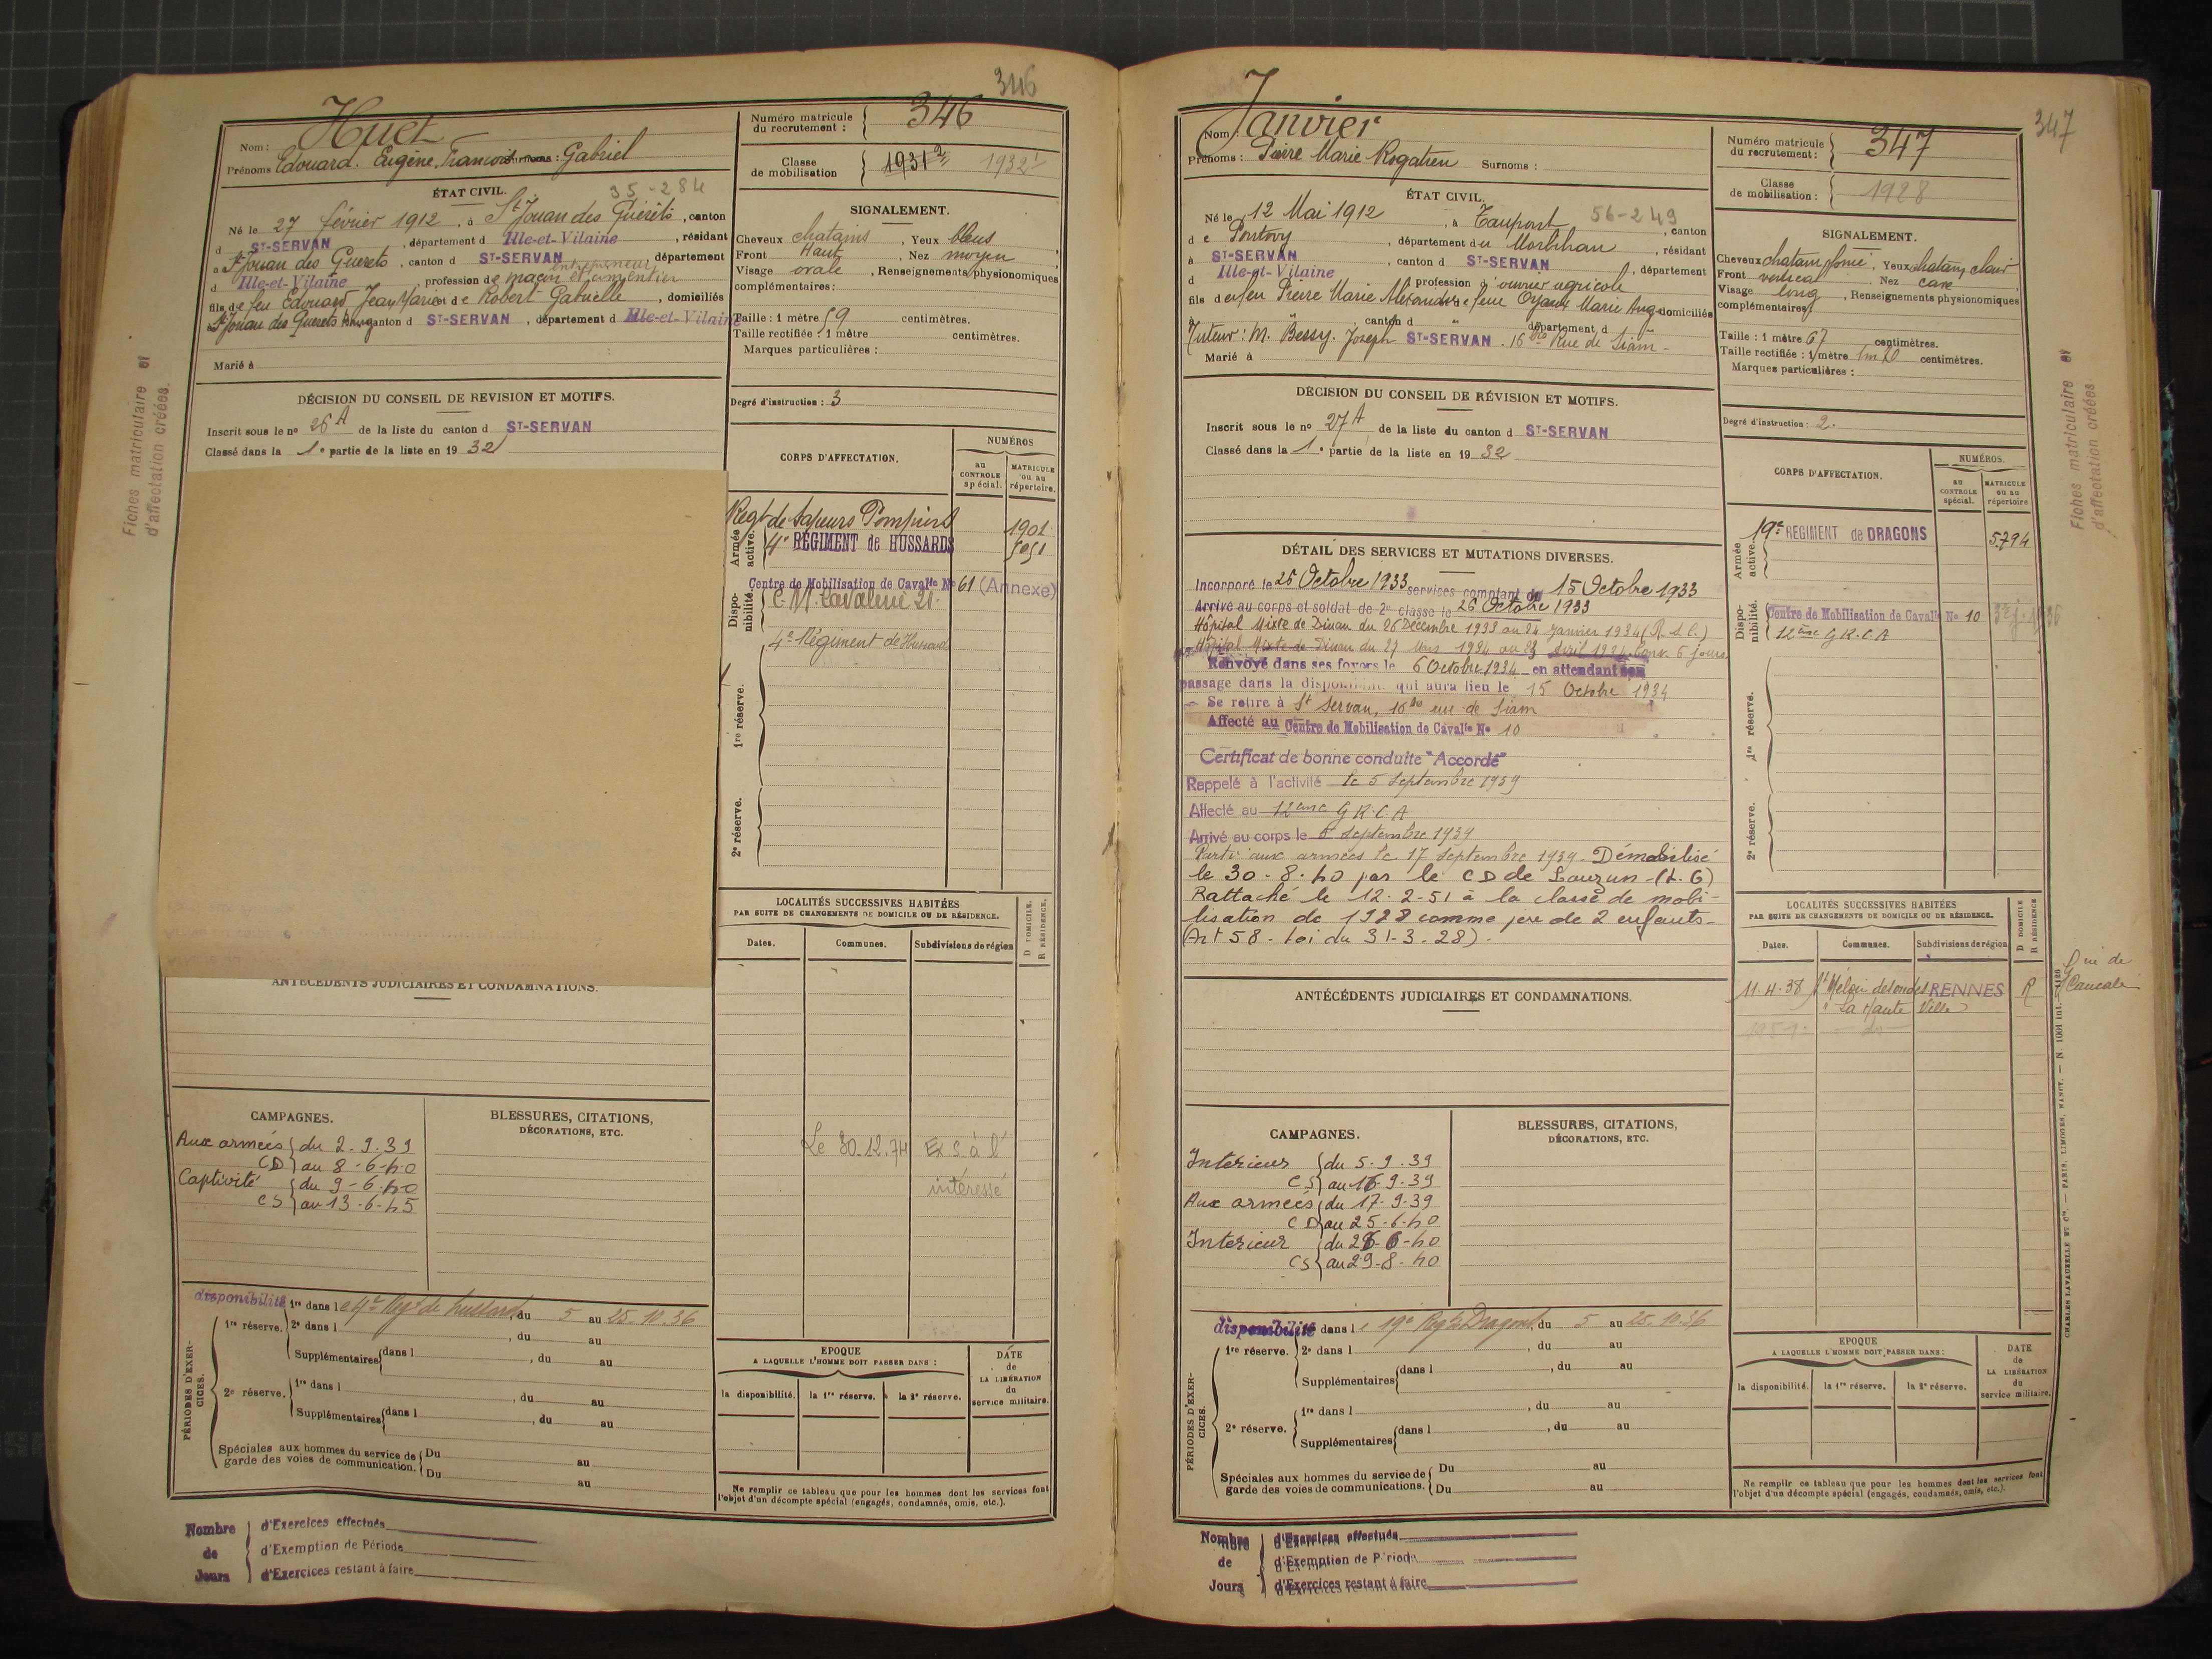 346
Nom : Huet
Prénoms Edouard. Eugène. François Surnoms : Gabriel
Numéro matricule du recrutement : 346
Classe de mobilisation 1931 2 1932
ÉTAT CIVIL. 35-284
Né le 27 février 1912, à St Jouan des Guérêts, canton
d ST-SERVAN, département d Ille-et-Vilaine, résidant
à St Jouan des Guerets, canton d ST-SERVAN département
entrepreneur
d Ille-et-Vilaine, profession de maçon et cimentier
fils de feu Edouard Jean Marie et de Robert Gabrielle, domiciliés
à St Jouan des Guerets canton d ST-SERVAN, département d Ille-et-Vilaine
Marié à
SIGNALEMENT.
Cheveux chatains, Yeux bleus
Front Haut, Nez moyen
Visage ovale, Renseignements physionomiques
complémentaires :
Taille : 1 mètre 59 centimètres.
Taille rectifiée : 1 mètre centimètres.
Marques particulières :
Degré d'instruction : 3
DÉCISION DU CONSEIL DE REVISION ET MOTIFS.
Inscrit sous le no 26 A de la liste du canton d ST-SERVAN
Classé dans la 1e partie de la liste en 1932
CORPS D'AFFECTATION.
NUMÉROS
au CONTROLE spécial.
MATRICULE ou au répertoire.
Armée active.
Regt de Sapeurs Pompiers 1901
4e RÉGIMENT de HUSSARDS 5051
Disponibilité.
Centre de Mobilisation de Cavalle No 61 (Annexe)
C. M. Cavalerie 21.
4e Régiment de Hussard
1re réserve.
2e réserve.
LOCALITÉS SUCCESSIVES HABITÉES
PAR SUITE DE CHANGEMENTS DE DOMICILE OU DE RÉSIDENCE.
Dates.
Communes.
Subdivisions de région
D DOMICILE.
R RÉSIDENCE.
Le 30.12.74 Ex. S. à l'
intéressé
ANTÉCÉDENTS JUDICIAIRES ET CONDAMNATIONS.
CAMPAGNES.
Aux armées du 2-9-39
CD au 8-6-40
Captivité du 9-6-40
CS au 13-6-45
BLESSURES, CITATIONS,
DÉCORATIONS, ETC.
PÉRIODES D'EXERCICES.
disponibilité 1re dans le 4e Regt de hussard, du 5 au 25.10.36
1re réserve. 2e dans l , du au
Supplémentaires dans l , du au
2e réserve. 1re dans l , du au
Supplémentaires dans l , du au
Spéciales aux hommes du service de Du au
garde des voies de communication. Du au
EPOQUE
A LAQUELLE L'HOMME DOIT PASSER DANS :
la disponibilité.
la 1re réserve.
la 2e réserve.
DATE de LA LIBÉRATION du service militaire.
Ne remplir ce tableau que pour les hommes dont les services font
l'objet d'un décompte spécial (engagés, condamnés, omis, etc.).
Nombre de Jours
d'Exercices effectués
d'Exemption de Période
d'Exercices restant à faire
Fiches matriculaire et
d'affectation créées.
347
Nom : Janvier
Prénoms : Pierre Marie Rogatien Surnoms :
Numéro matricule du recrutement : 347
Classe de mobilisation : 1928
ÉTAT CIVIL.
Né le 12 Mai 1912, à Taupont 56-249, canton
de Pontivy, département du Morbihan, résidant
à ST-SERVAN, canton d ST-SERVAN, département
d Ille-et-Vilaine, profession d'ouvrier agricole
fils de feu Pierre Marie Alexandre et de feue Marie Ang domiciliés
à " canton d " département d "
Tuteur : M. Bessy. Joseph ST-SERVAN. 16 bis Rue de Siam -
Marié à
SIGNALEMENT.
Cheveux chatain foncé, Yeux chatain clair
Front vertical Nez cave
Visage long, Renseignements physionomiques
complémentaires :
Taille : 1 mètre 67 centimètres.
Taille rectifiée : 1 mètre 1m70 centimètres.
Marques particulières :
Degré d'instruction : 2.
DÉCISION DU CONSEIL DE RÉVISION ET MOTIFS.
Inscrit sous le no 27 A, de la liste du canton d ST-SERVAN
Classé dans la 1e partie de la liste en 1932
DÉTAIL DES SERVICES ET MUTATIONS DIVERSES.
Incorporé le 26 Octobre 1933 services comptant du 15 Octobre 1933
Arrivé au corps et soldat de 2e classe le 26 Octobre 1933
Hôpital Mixte de Dinan du 26 Décembre 1933 au 24 Janvier 1934
Hôpital Mixte de Dinan du 27 Mars 1934 au 23 Avril 1934. Conv. 6 jours
Renvoyé dans ses foyers le 6 Octobre 1934 en attendant son
passage dans la disponibilité qui aura lieu le 15 Octobre 1934
Se retire à St Servan, 16 bis rue de Siam
Affecté au Centre de Mobilisation de Cavalle No 10
Certificat de bonne conduite "Accordé"
Rappelé à l'activité le 5 Septembre 1939
Affecté au 12ème G.R.C.A
Arrivé au corps le 6 Septembre 1939
Parti aux armées le 17 Septembre 1939. Démobilisé
le 30-8-40 par le CD de Lauzun-(L.G)
Rattaché le 12-2-51 à la classe de mobi-
lisation de 1928 comme père de 2 enfants-
(Art 58. Loi du 31-3-28).
CORPS D'AFFECTATION.
NUMÉROS.
au CONTROLE spécial.
MATRICULE ou au répertoire
Armée active.
19e RÉGIMENT de DRAGONS 5794
Disponibilité.
Centre de Mobilisation de Cavalle No 10
12ème G.R.C.A
1re réserve.
2e réserve.
LOCALITÉS SUCCESSIVES HABITÉES
PAR SUITE DE CHANGEMENTS DE DOMICILE OU DE RÉSIDENCE.
Dates.
Communes.
Subdivisions de région
D DOMICILE
R RÉSIDENCE
11.4.38 St Méloir des ondes RENNES R
La Haute Ville
rue de
Cancale
ANTÉCÉDENTS JUDICIAIRES ET CONDAMNATIONS.
CAMPAGNES.
Interieur du 5-9-39
CS au 16-9-39
Aux armées du 17-9-39
CD au 25-6-40
Interieur du 26-6-40
CS au 29-8-40
BLESSURES, CITATIONS,
DÉCORATIONS, ETC.
PÉRIODES D'EXERCICES.
disponibilité dans le 19e Regt Dragons, du 5 au 25.10.36
1re réserve. 2e dans l , du au
Supplémentaires dans l , du au
2e réserve. 1re dans l , du au
Supplémentaires dans l , du au
Spéciales aux hommes du service de Du au
garde des voies de communications. Du au
EPOQUE
A LAQUELLE L'HOMME DOIT PASSER DANS :
la disponibilité.
la 1re réserve.
la 2e réserve.
DATE de LA LIBÉRATION du service militaire.
Ne remplir ce tableau que pour les hommes dont les services font
l'objet d'un décompte spécial (engagés, condamnés, omis, etc.).
Nombre de Jours
d'Exercices effectués
d'Exemption de Période
d'Exercices restant à faire
Fiches matriculaire et
d'affectation créées.
CHARLES LAVAUZELLE ET Cie. — PARIS, LIMOGES, NANCY. — N. 1001 int.